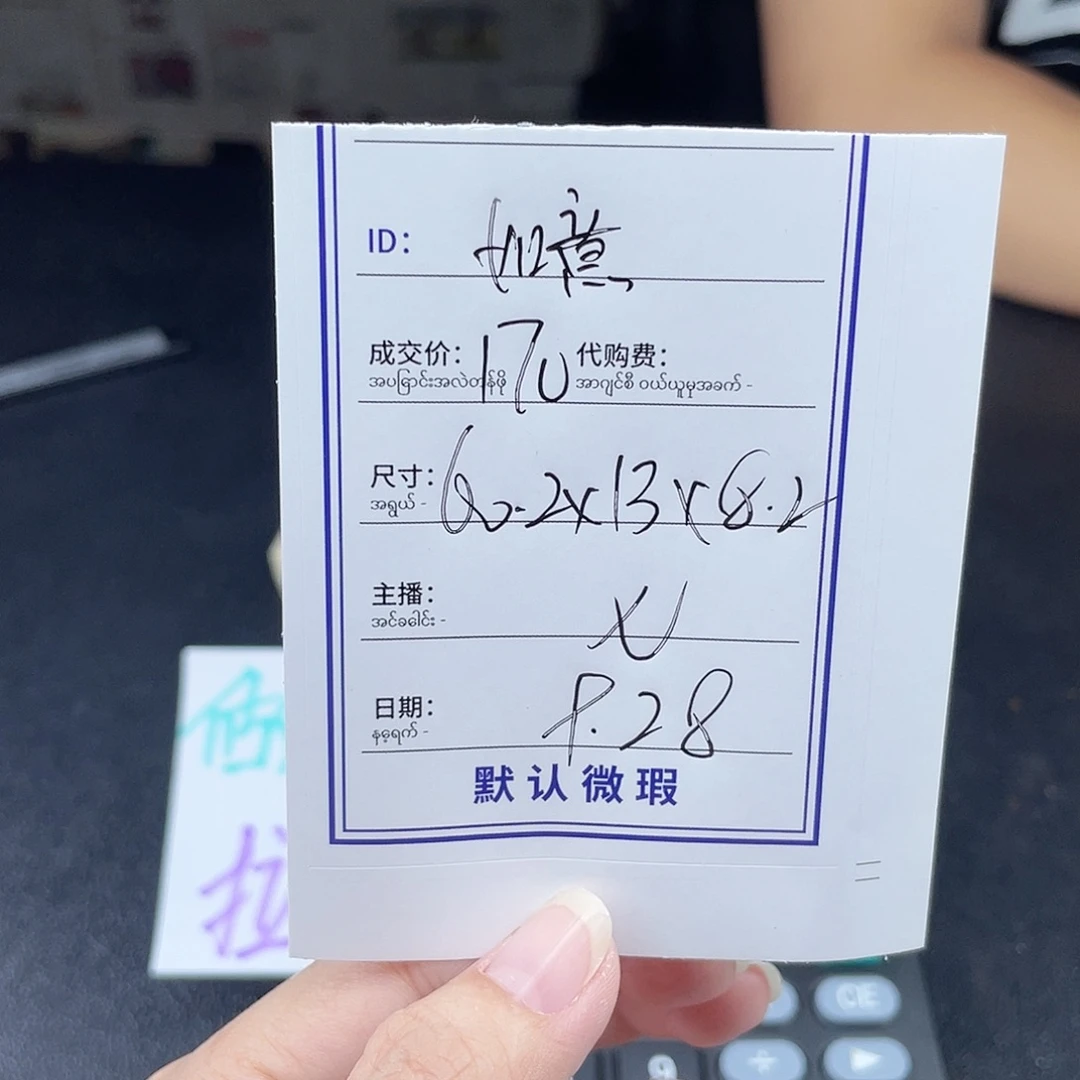 ID:
成交价: 170 代购费:
အပြောင်းအလဲတန်ဖိုး အာဂျင်စီ ဝယ်ယူမှုအခက် -
尺寸: 60.2x13x8.2
အရွယ် -
主播:
အင်ခေါင်း -
日期: 9.28
နေ့ရက် -
默认微瑕
拉
CE
9
÷